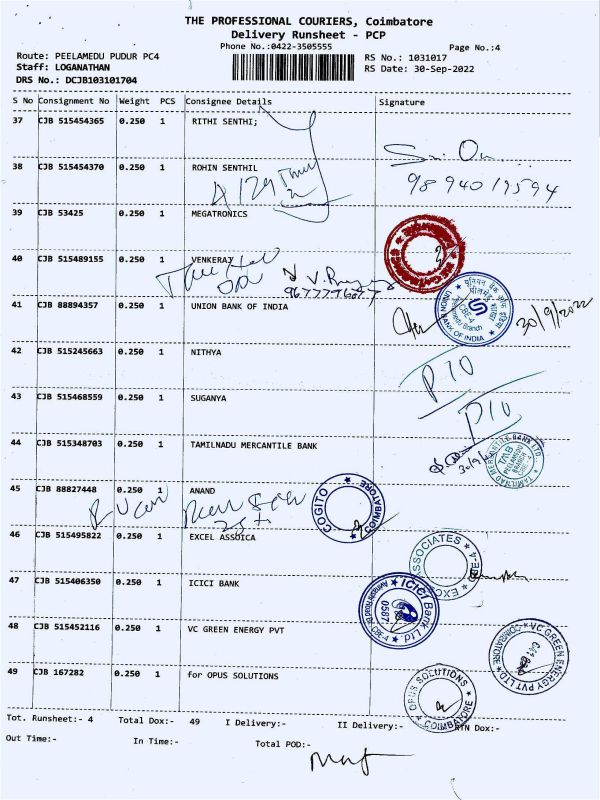 THE PROFESSIONAL COURIERS, Coimbatore
Delivery Runsheet - PCP
Phone No.:0422-3505555
Page No.:4
Route: PEELAMEDU PUDUR PC4
RS No.: 1031017
Staff: LOGANATHAN
RS Date: 30-Sep-2022
DRS No.: DCJB103101704
S No Consignment No Weight PCS Consignee Details Signature
37 CJB 515454365 0.250 1 RITHI SENTHI;
38 CJB 515454370 0.250 1 ROHIN SENTHIL
9894019594
39 CJB 53425 0.250 1 MEGATRONICS
40 CJB 515489155 0.250 1 VENKERAJ
41 CJB 88894357 0.250 1 UNION BANK OF INDIA
UNION BANK OF INDIA
Branch
30/9/2022
42 CJB 515245663 0.250 1 NITHYA
43 CJB 515468559 0.250 1 SUGANYA
44 CJB 515348703 0.250 1 TAMILNADU MERCANTILE BANK
TAMILNAD MERCANTILE BANK LTD.
TMB
PEELAMEDU
BRANCH
45 CJB 88827448 0.250 1 ANAND
COGITO COIMBATORE
46 CJB 515495822 0.250 1 EXCEL ASSOICA
ASSOCIATES
47 CJB 515406350 0.250 1 ICICI BANK
ICICI Bank Ltd.
0587
48 CJB 515452116 0.250 1 VC GREEN ENERGY PVT
VC GREEN ENERGY PVT LTD COIMBATORE
49 CJB 167282 0.250 1 for OPUS SOLUTIONS
OPUS SOLUTIONS COIMBATORE
Tot. Runsheet:- 4 Total Dox:- 49 I Delivery:- II Delivery:- RTN Dox:-
Out Time:- In Time:- Total POD:-